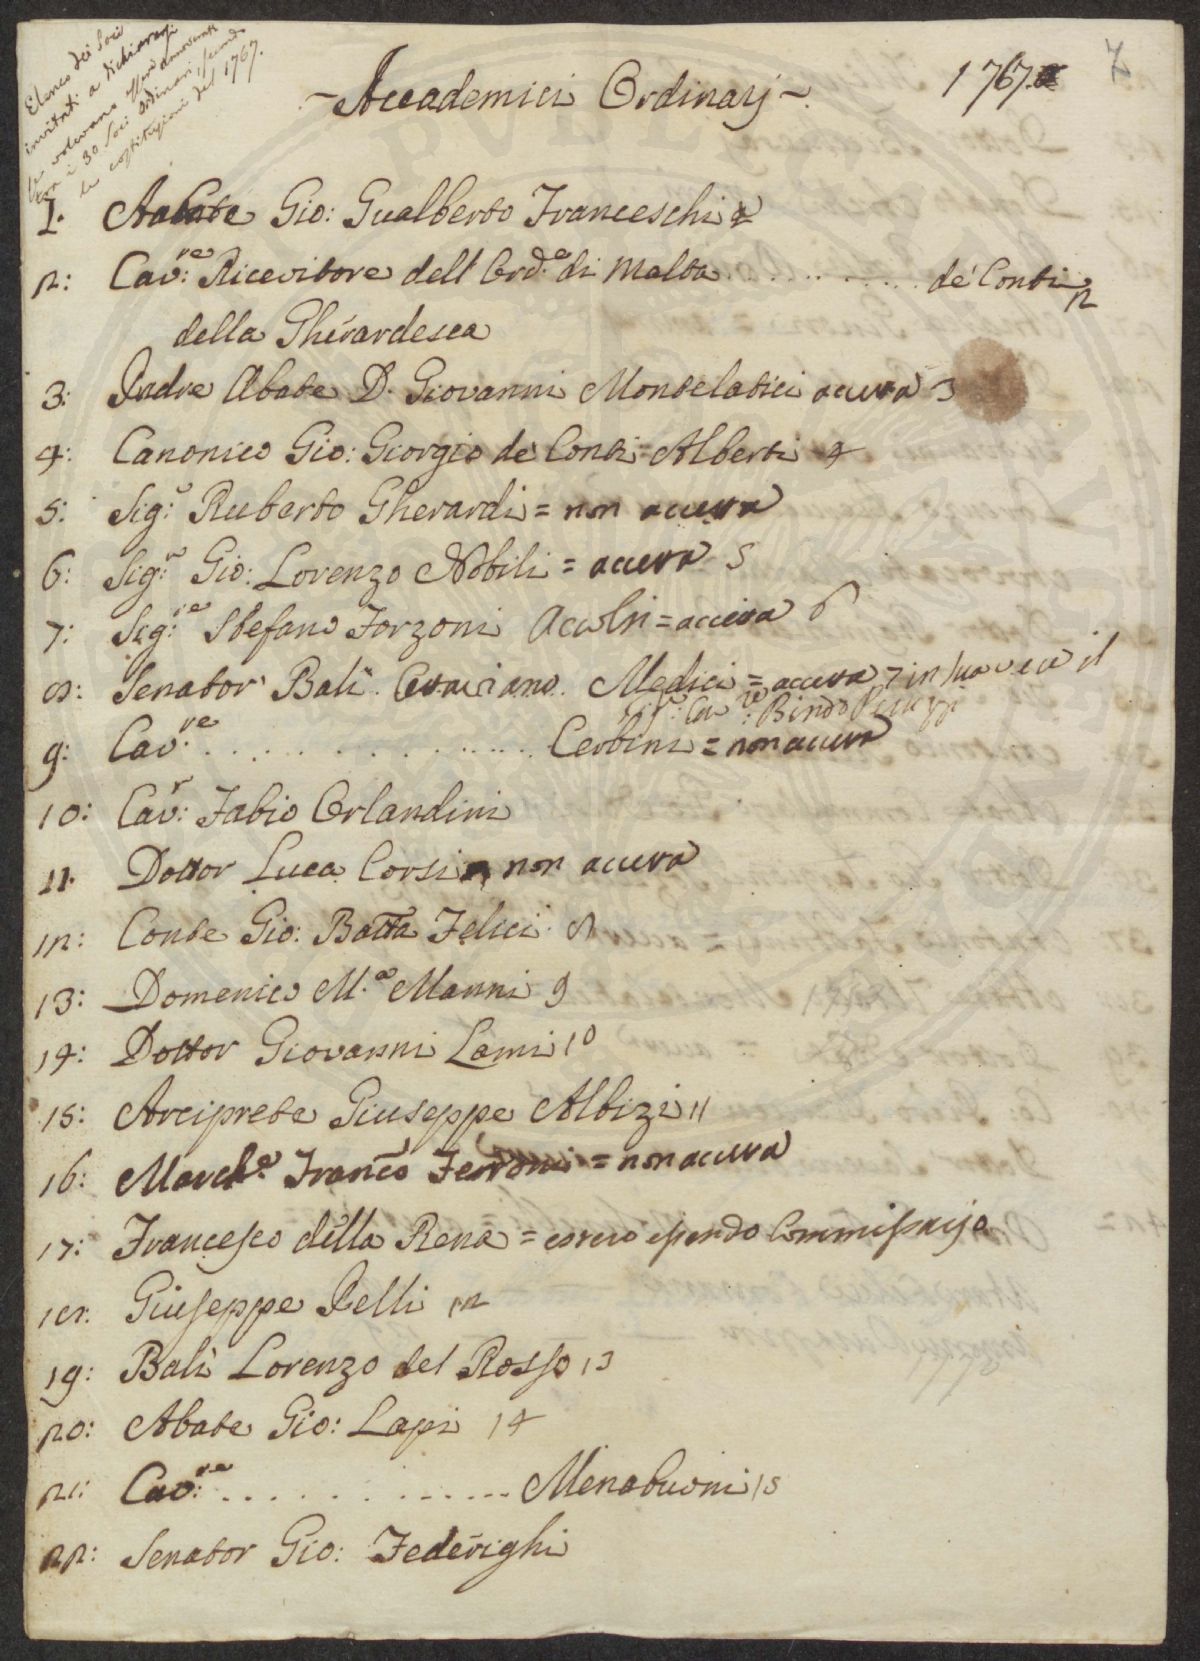 Elenco dei Soci
invitati a dichiararsi
se volevano essere annoverati
tra i 30 Soci Ordinari, secondo
le costituzioni del 1767.
~Accademici Ordinarj~.
1767.
7
1. Abate Gio: Gualberto Franceschi
2: Cav:re Ricevitore dell Ord:e di Malta . . . . . . . . . de' Conti 2
della Gherardesca
3: Padre Abate D. Giovanni Montelatici accetta 3
4: Canonico Gio: Giorgio de Conti Alberti 4
5: Sig:r Ruberto Gherardi = non accetta
6: Sig:r Gio: Lorenzo Nobili = accetta 5
7: Sig:re Stefano Forzoni Accolti = accetta 6
8: Senator Balì . . Medici = accetta 7 in sua vece il
Sig:r Cav:re Bindo Peruzzi
9: Cav:re . . . . . . . . . . . . . . . Cerbini = non accetta
10: Cav:r Fabio Orlandini
11. Dottor Luca Corsi non accetta
12: Conte Gio: Batta Felici 8
13: Domenico M.a Manni 9
14: Dottor Giovanni Lami 10
15: Arciprete Giuseppe Albizi 11
16: March:e Franco Ferroni = non accetta
17: Francesco della Rena = essendo Commissario
18: Giuseppe Pelli 12
19: Balì Lorenzo del Rosso 13
20: Abate Gio: Lapi 14
21: Cav:re . . . . . . . . . . . . . Menabuoni 15
22: Senator Gio: Federighi